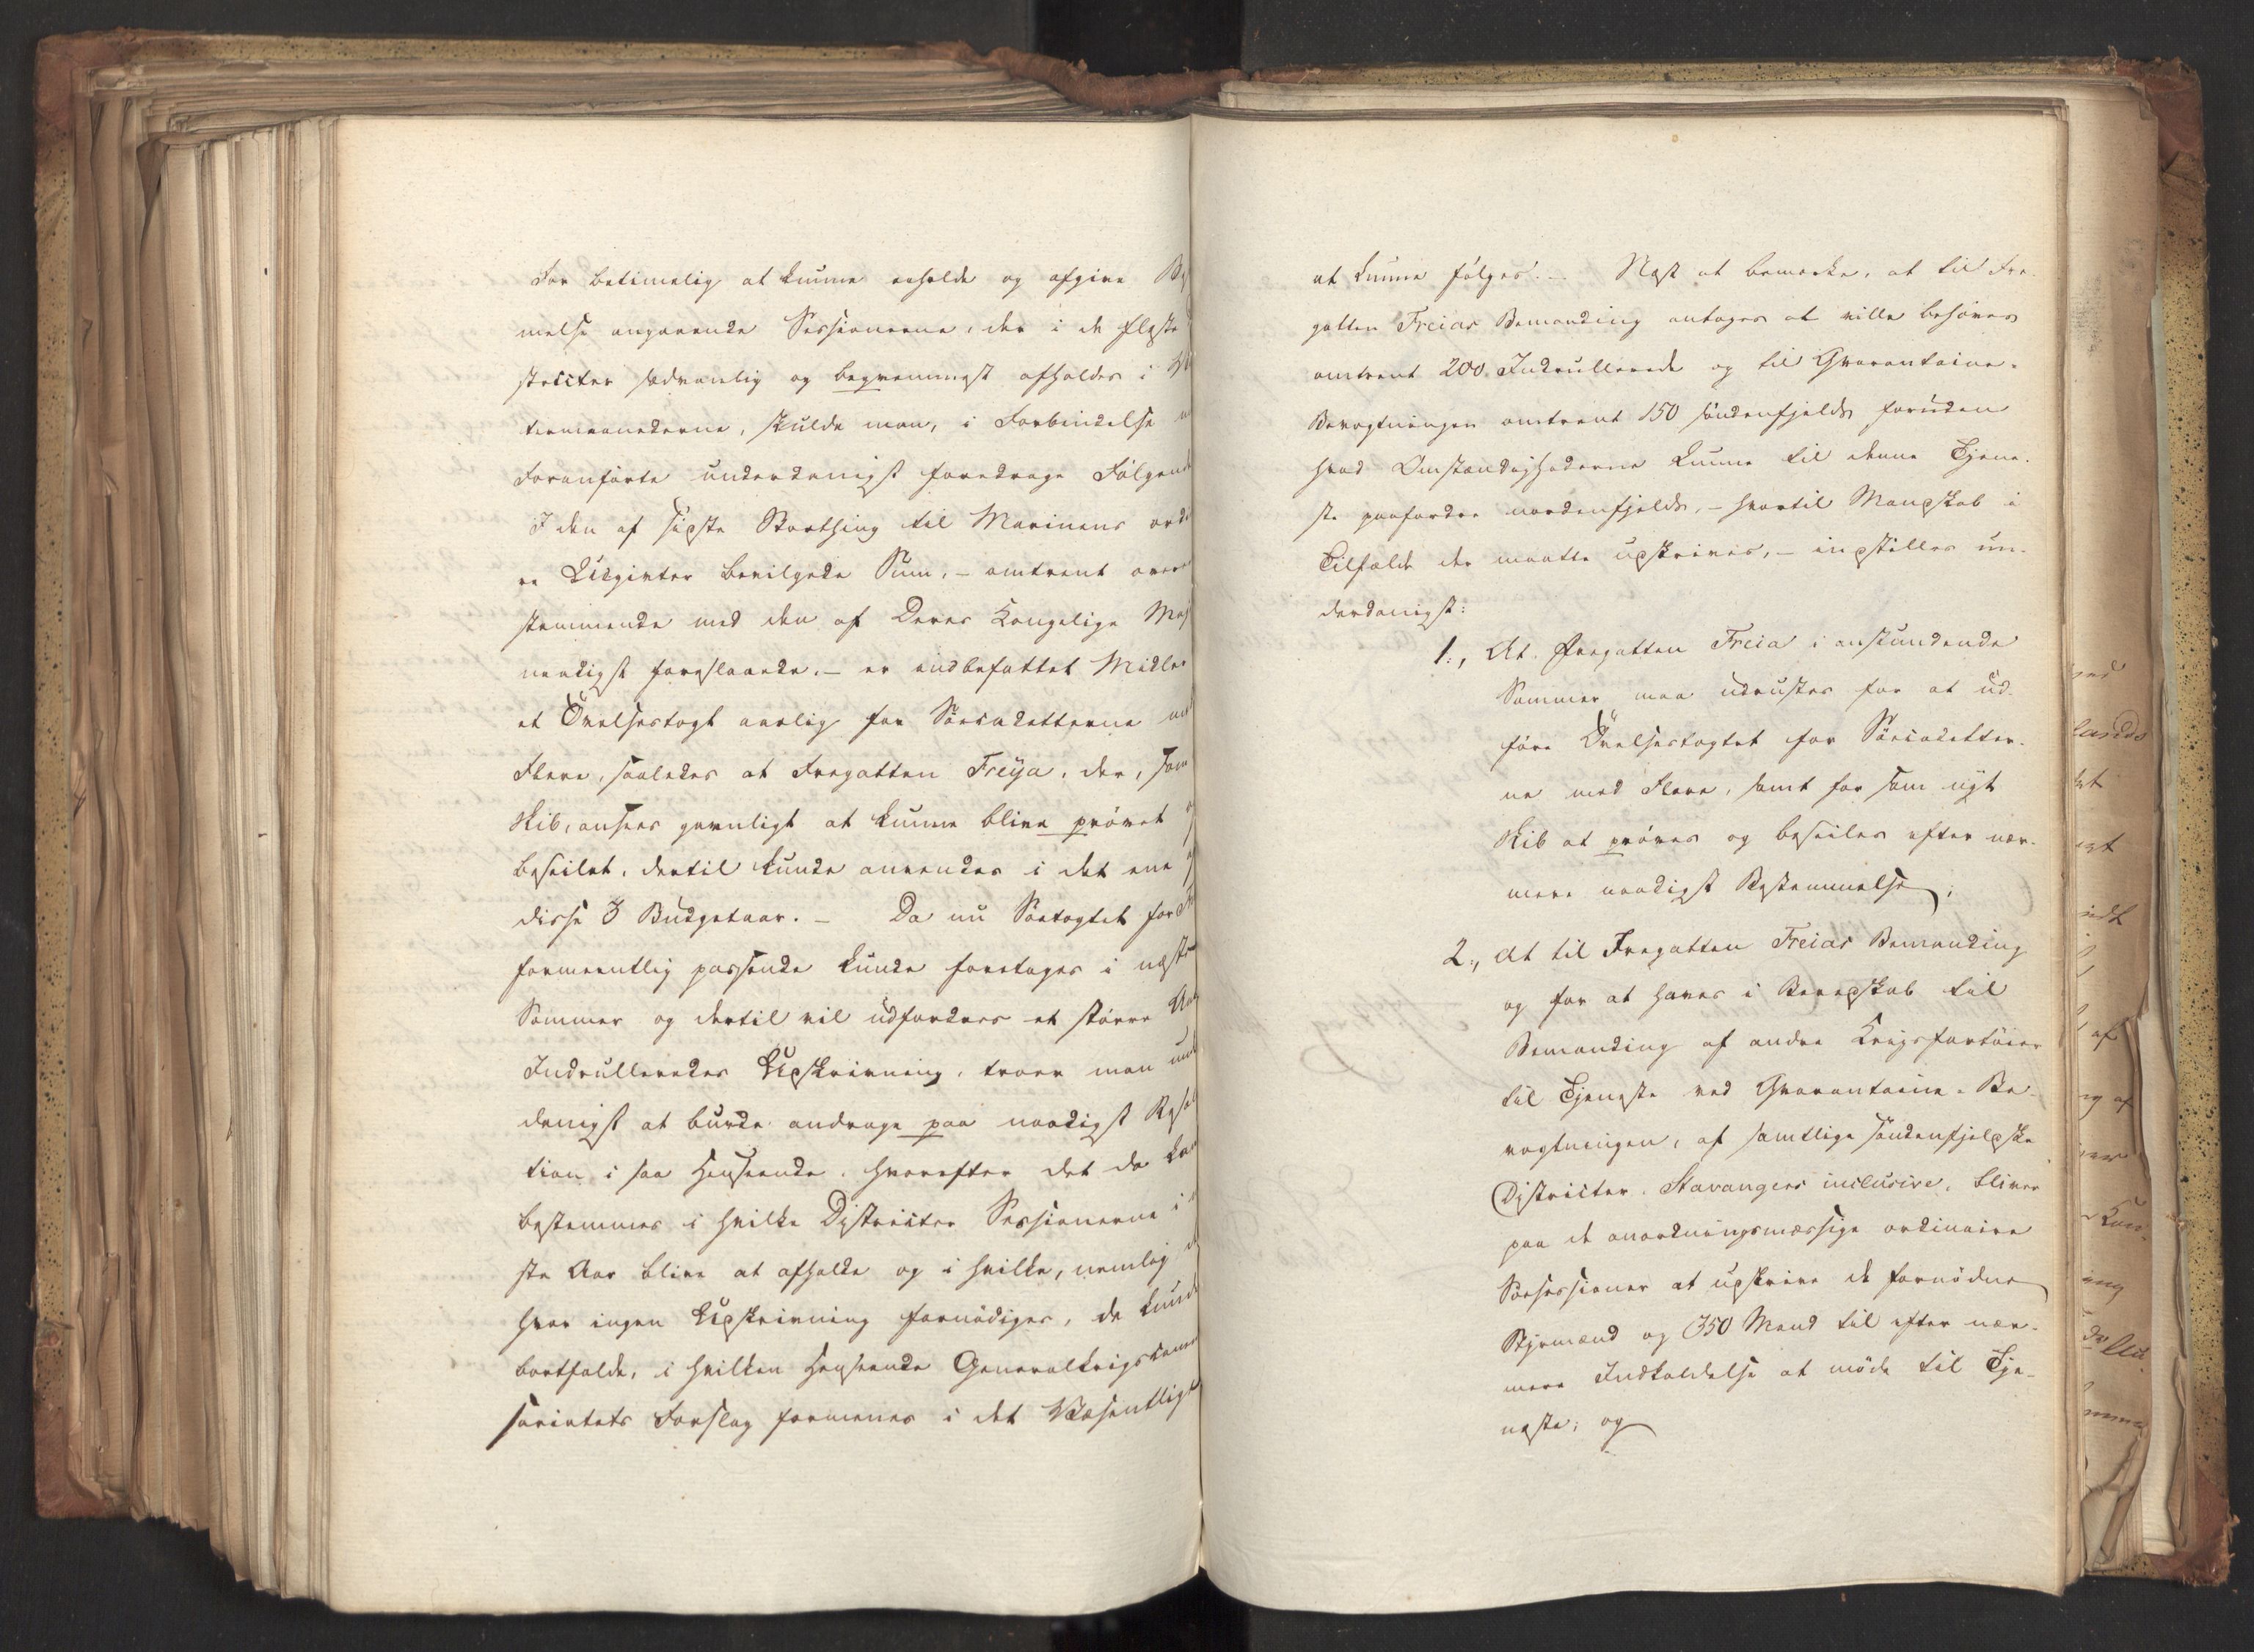 For betimelig at kunne erholde og afgive
melse angaaende Sessionerne, der i de fleste
stricter sædvanlig og beqvemmest afholdes i
termaanederne, skulde man, i Forbindelse
Foranførte underdanigst foredrage Følgende
I den af sidste Storthing til Marinens ordi
re Udgivter bevilgede Sum, - omtrent overe
stemmende med den af Deres Kongelige Maj
naadigst foreslaaede, - er indbefattet Midler
et Øvelsestogt aarlig for Søecadetterne
Flere, saaledes at Fregatten Freÿa, der, som
Skib, ansees gavnligt at kunne blive prøvet
beseilet, dertil kunde anvendes i det ene
disse 3 Budgetaar. - Da nu Søetogtet
formeentlig passende kunde foretages i næst
Sommer og dertil vil udfordres et større
Indrulleredes Udskrivning, troer man un
danigst at burde andrage paa naadigst Resol
tion i saa Henseende, hvorefter det da kan
bestemmes i hvilke Districter Sessionerne i
ste Aar blive at afholde og i hvilke, nemlig
hvor ingen Udskrivning fornødiges, de kunde
bortfalde, i hvilken Henseende Generalkrigscom
sariatets Forslag formenes i det Væsentlige
at kunne følges. - Næst at bemærke, at til Fre-
gatten Freias Bemanding antages at ville behøves
omtrent 200 Indrullerede og til Qvarantaine-
Bevogtningen omtrent 150 søndenfjelds foruden
hvad Omstændighederne kunne til denne Tjene-
ste paafordre nordenfjelds, - hvortil Mandskab i
Tilfælde der maatte udskrives, - indstilles un-
derdanigst:
1., At Fregatten Freia i anstundende
Sommer maa udrustes for at ud-
føre Øvelsestogtet for Søecadetter-
ne med Flere, samt for som nyt
Skib at prøves og beseiles efter nær-
mere naadigst Bestemmelse;
2., At til Fregatten Freias Bemanding
og for at haves i Beredskab til
Bemanding af andre Krigsfartøier
til Tjeneste ved Qvarantaine-Be-
vogtningen, af samtlige søndenfjeldske
Districter, Stavangers inclusive, bliver
paa de anordningsmæssige ordinaire
Søesessioner at udskrive de fornødne
Styrmænd og 350 Mand til efter nær-
mere Indkaldelse at møde til Tje-
neste; og